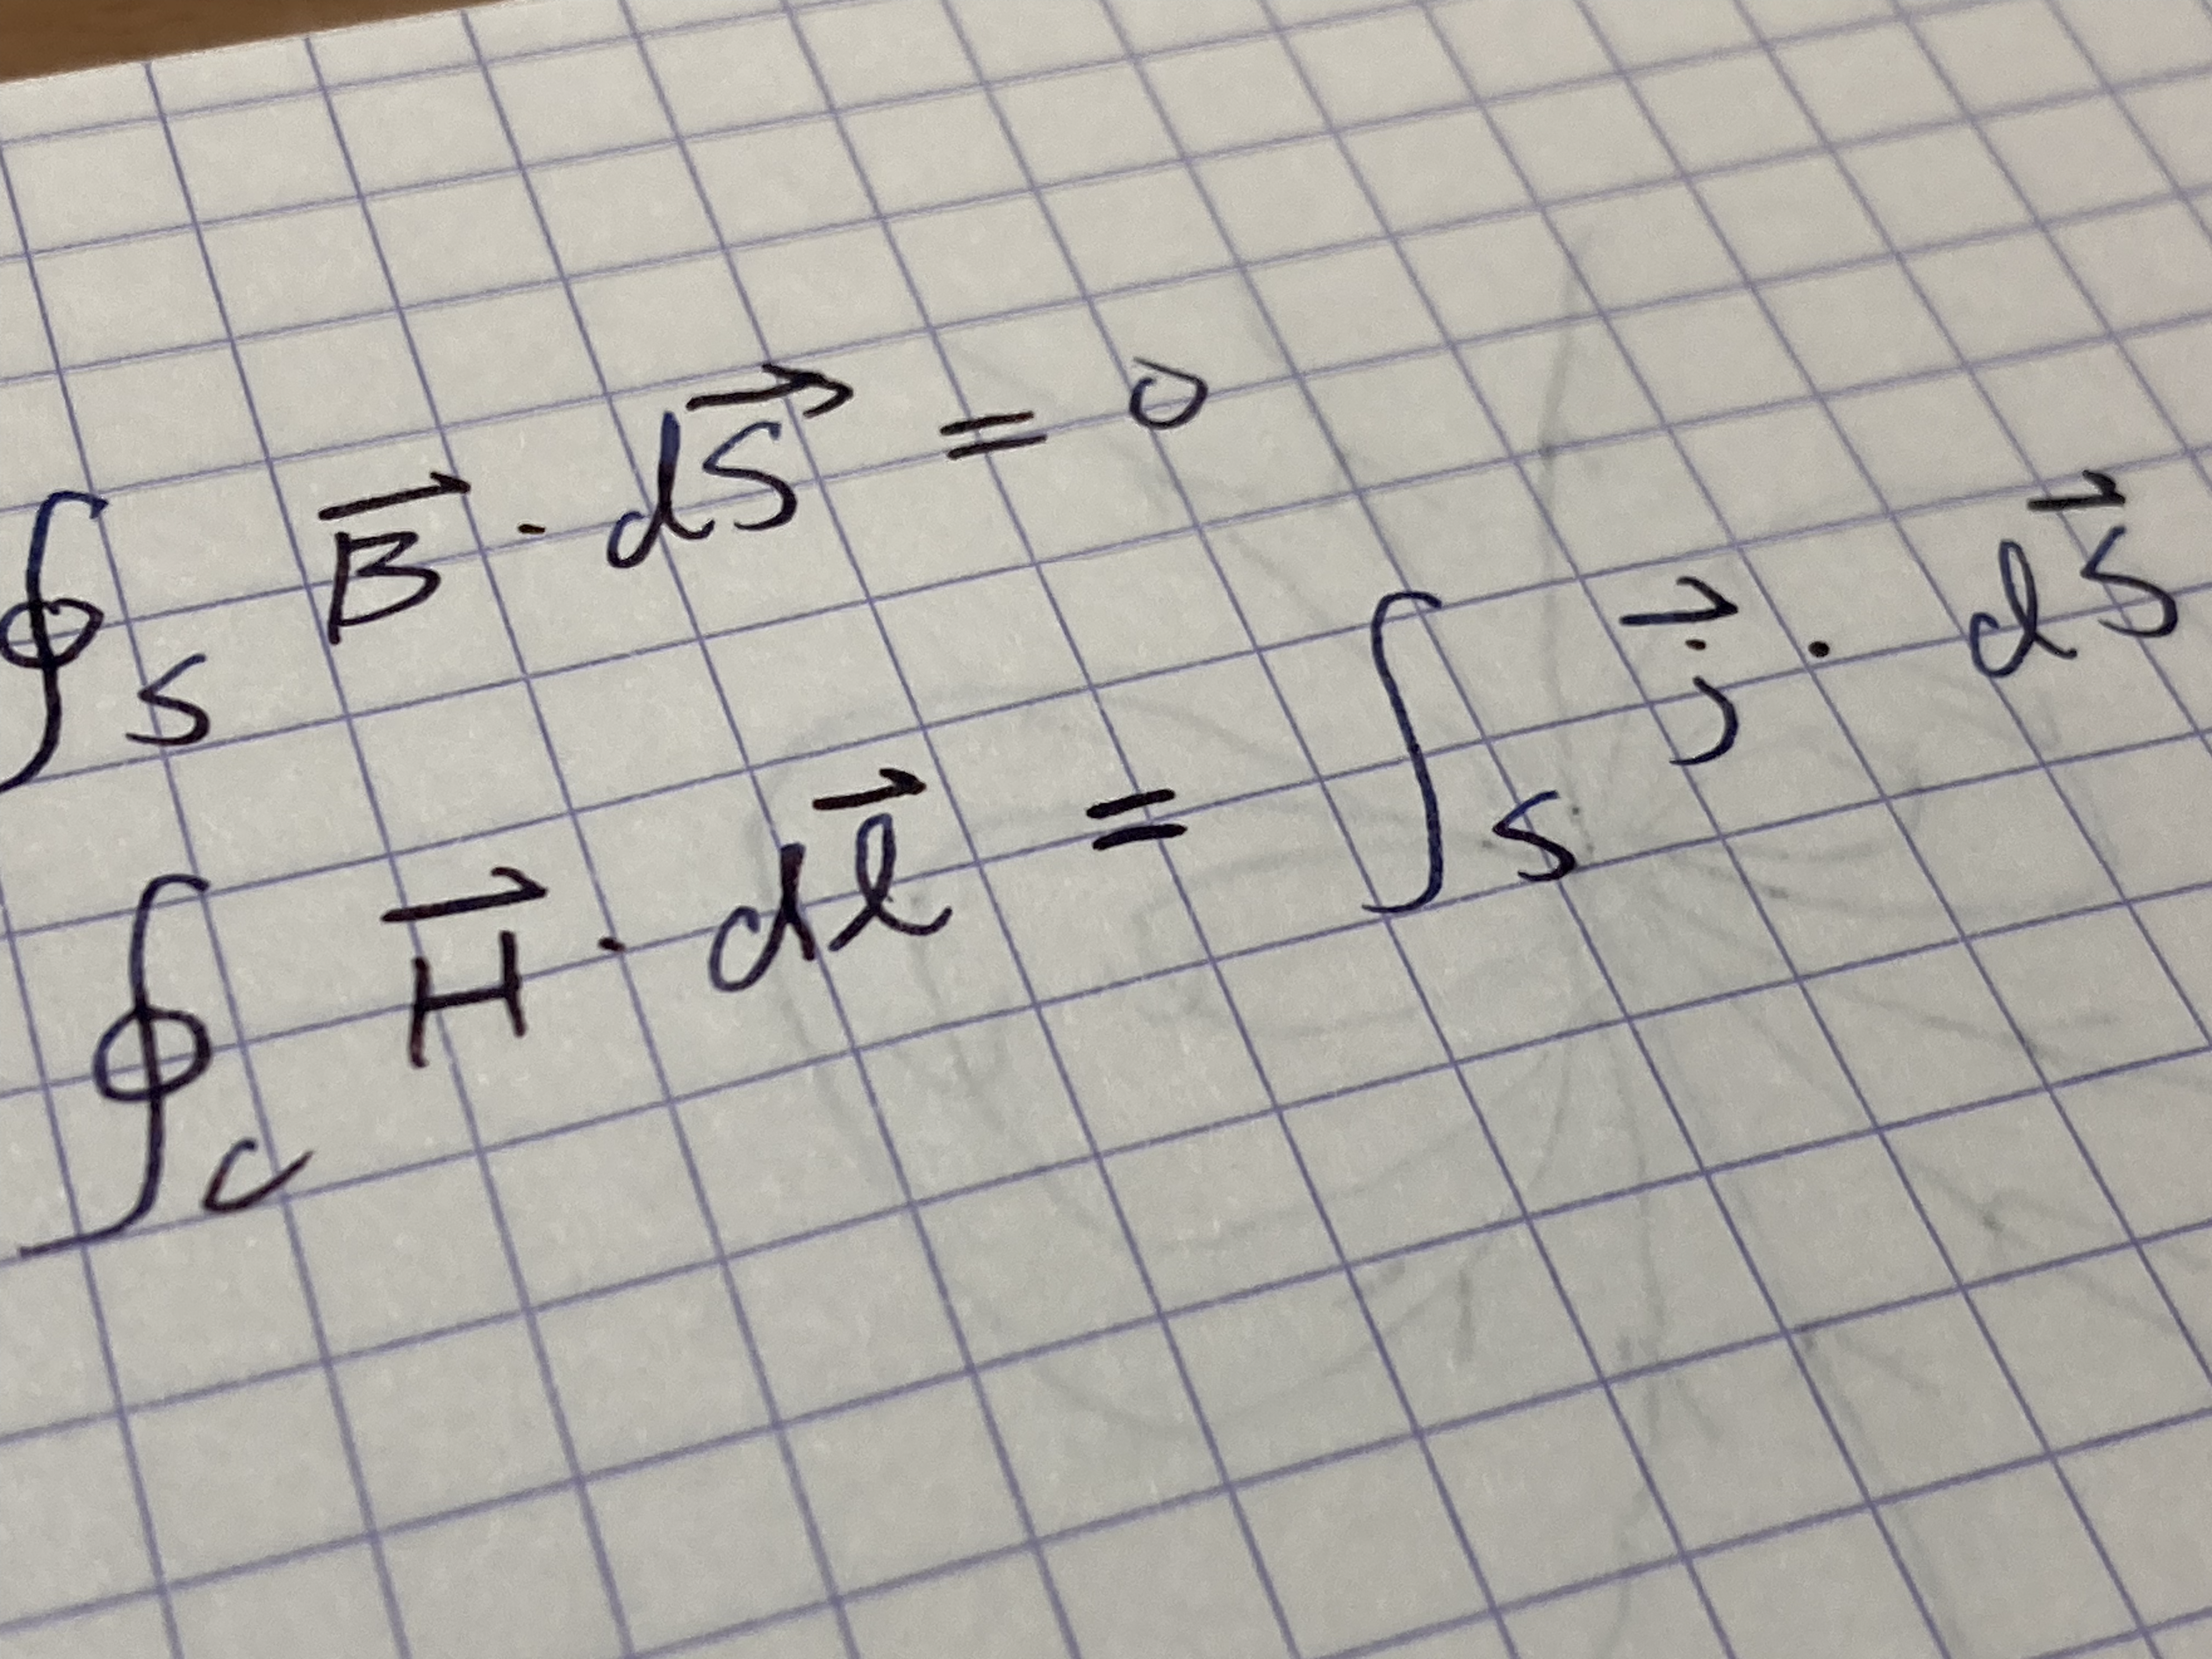 ∮_S B⃗ · dS⃗ = 0
∮_C H⃗ · dl⃗ = ∫_S j⃗ · dS⃗